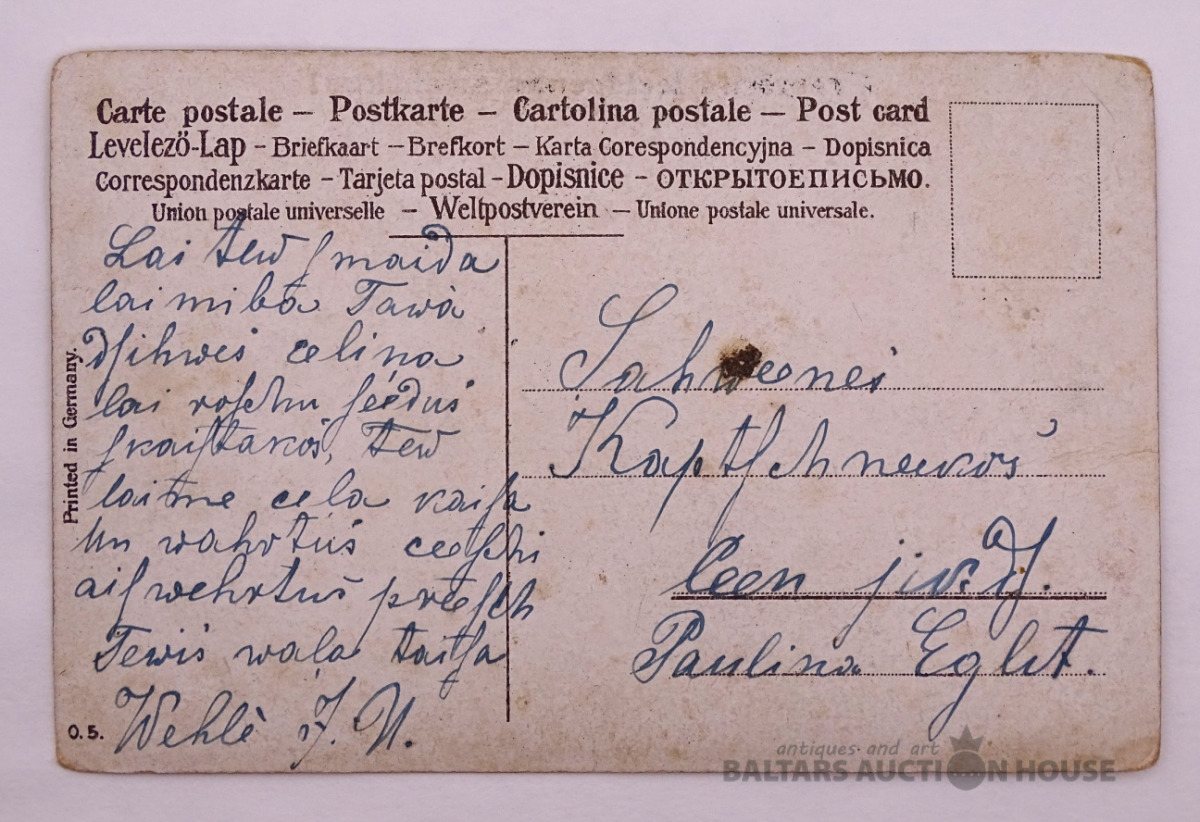 Carte postale – Postkarte – Cartolina postale – Post card
Levelezö-Lap – Briefkaart – Brefkort – Karta Corespondencyjna – Dopisnica
Correspondenzkarte – Tarjeta postal – Dopisnice – ОТКРЫТОЕ ПИСЬМО.
Union postale universelle – Weltpostverein – Unione postale universale.
Lai tew ſmaida
laimiba Tawâ
dſihwes celiņa
lai roſchu ſeedus
ſkaiſtakos, tew
laime cela kaiſa
Un wahrtus ceeſchi
aiſwehrtus preekſch
Tewis wala taiſa
Wehlè J. U.
Printed in Germany.
O. 5.
Sahweenes
Kaptſchneekos
Ceen jkdſ.
Paulina Eglit.
antiques and art
BALTARS AUCTION HOUSE